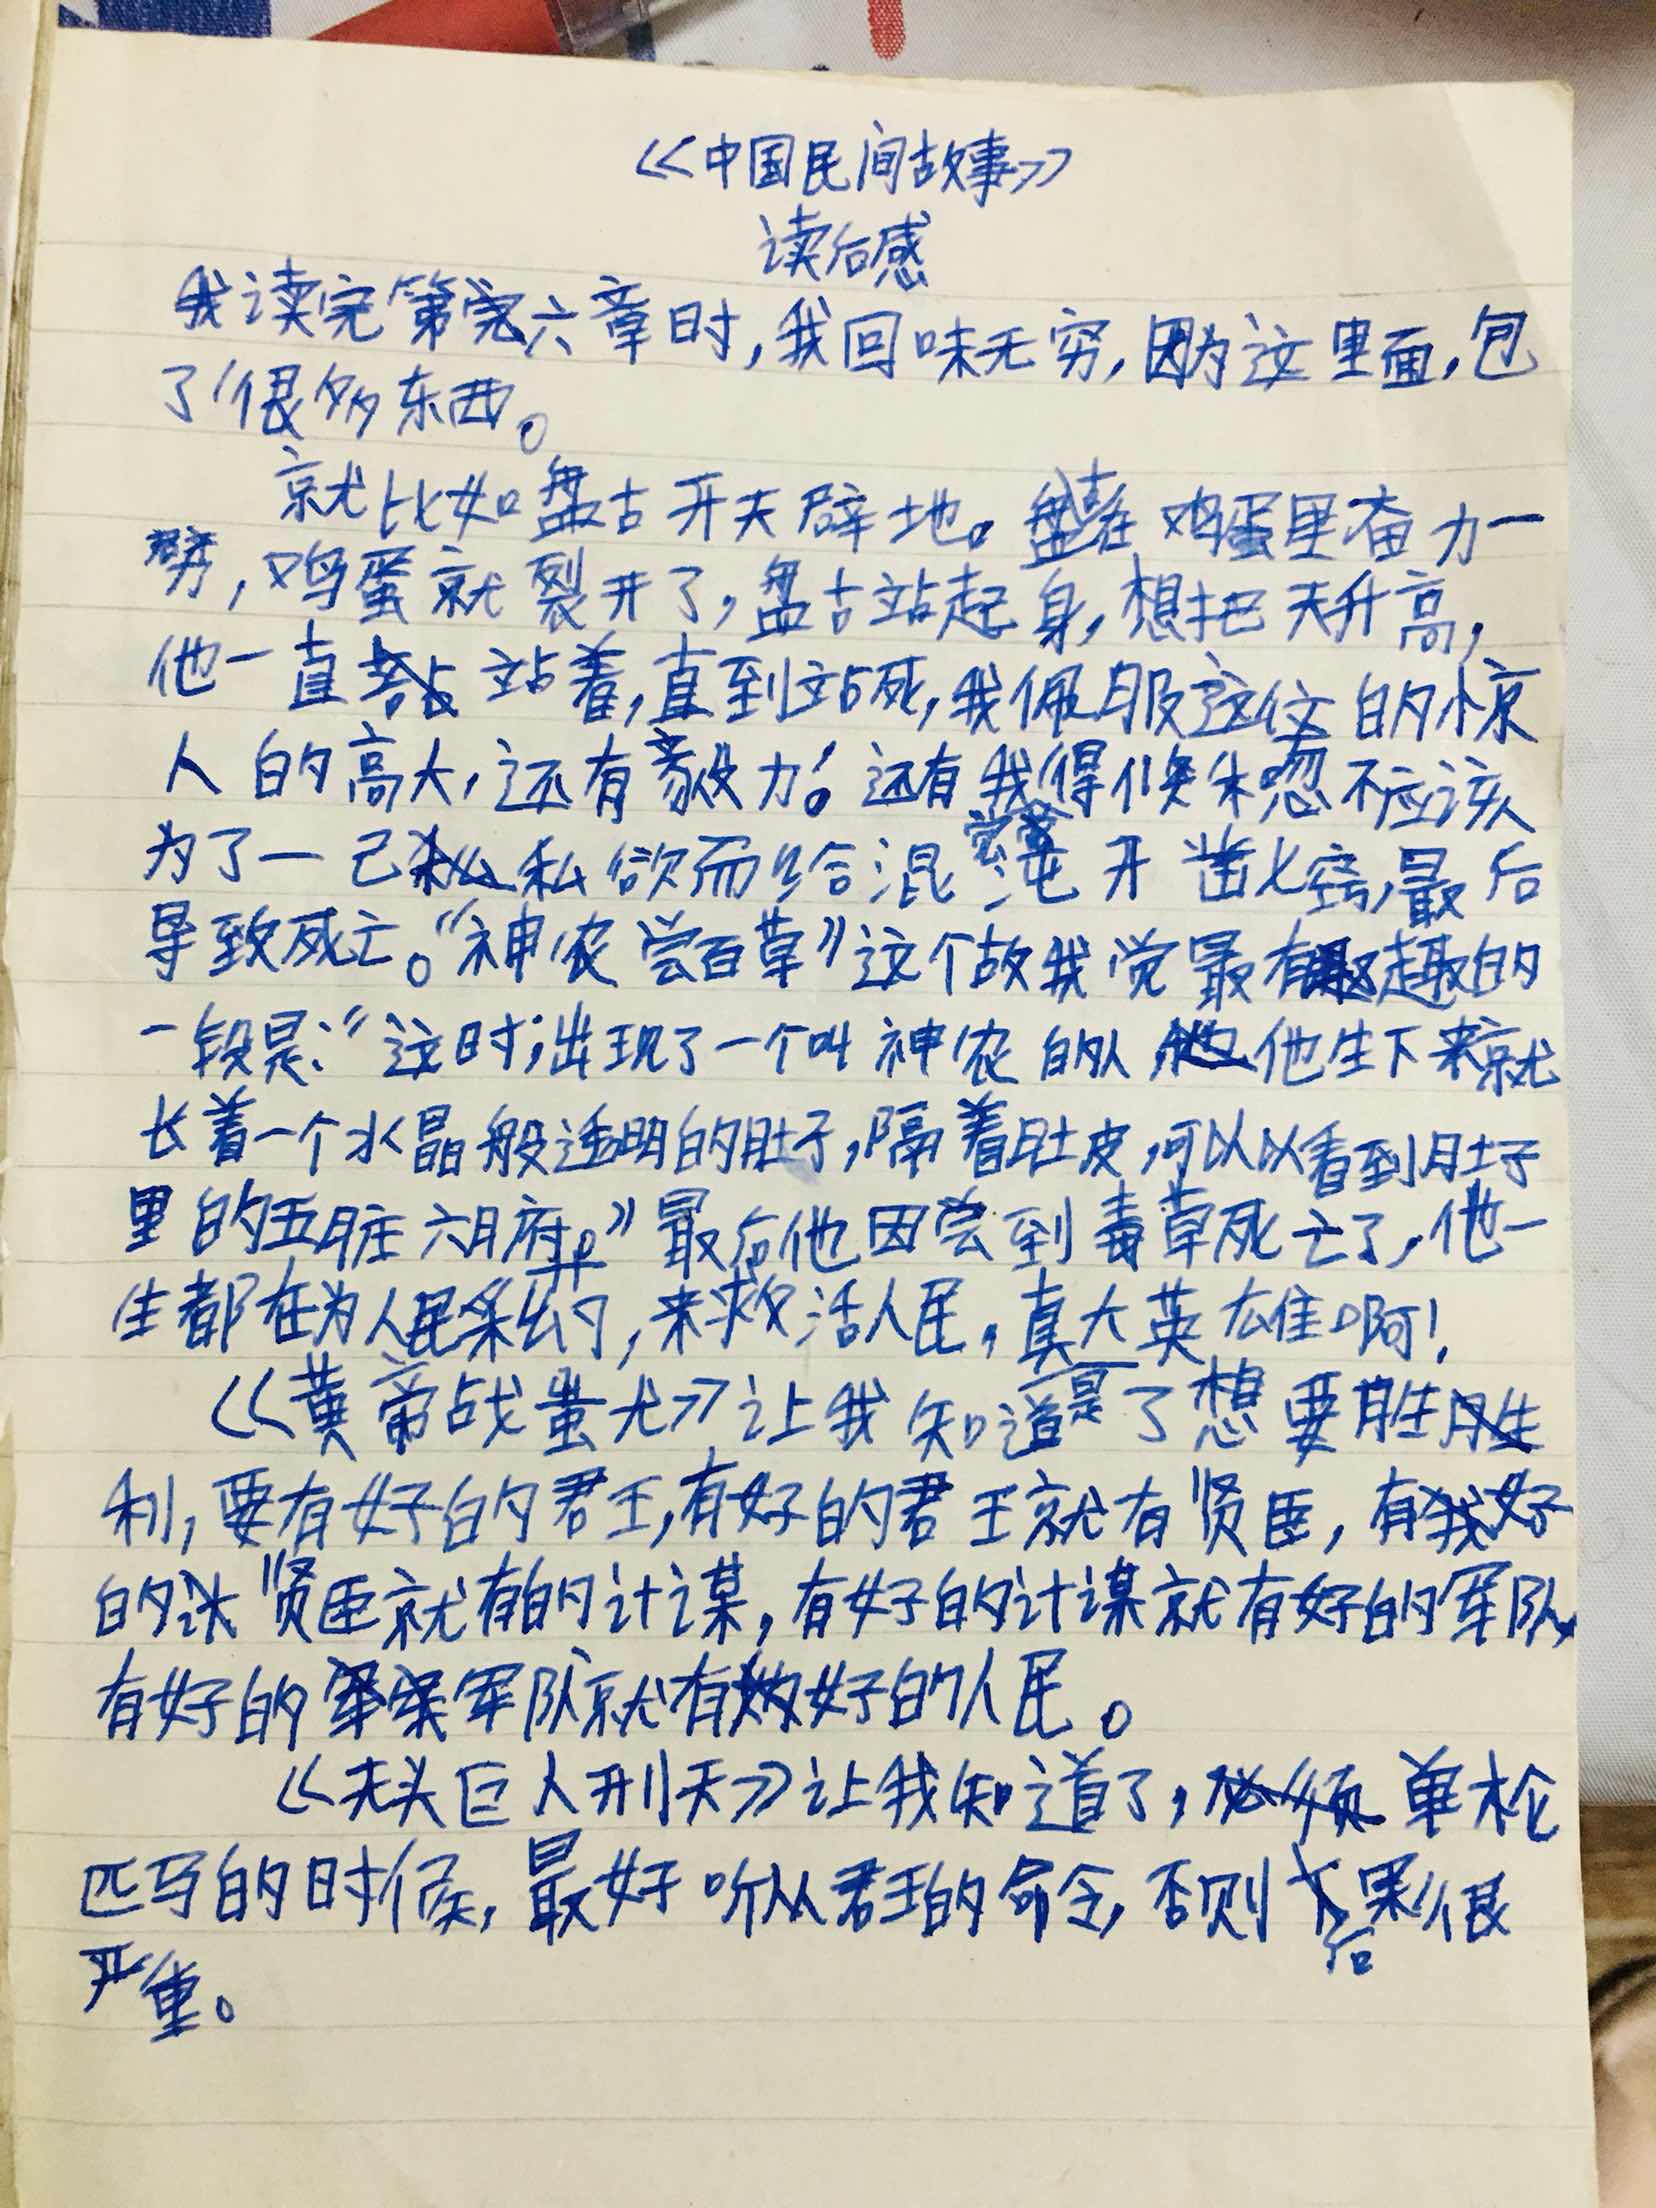 《中国民间故事》
读后感
我读完第六章时,我回味无穷,因为这里面,包
了很多东西。
就比如盘古开天辟地。盘古在鸡蛋里奋力一
劈,鸡蛋就裂开了,盘古站起身,想把天升高,
他一直站着,直到站死,我佩服这位的惊
人的高大,还有毅力!还有我得倏忽不应该
为了一己私欲而给混沌开凿七窍,最后
导致死亡。“神农尝百草”这个故我觉最有趣的
一段是:“这时,出现了一个叫神农的人,他生下来就
长着一个水晶般透明的肚子,隔着肚皮,可以以看到肚子
里的五脏六腑。”最后他因尝到毒草死亡了,他一
生都在为人民,来救活人民,真是大英雄啊!
《黄帝战蚩尤》让我知道了想要胜
利,要有好的君王,有好的君王就有贤臣,有好
的贤臣就有的计谋,有好的计谋就有好的军队,
有好的军队就有好的人民。
《无头巨人刑天》让我知道了,单枪
匹马的时候,最好听从君王的命令,否则后果很
严重。